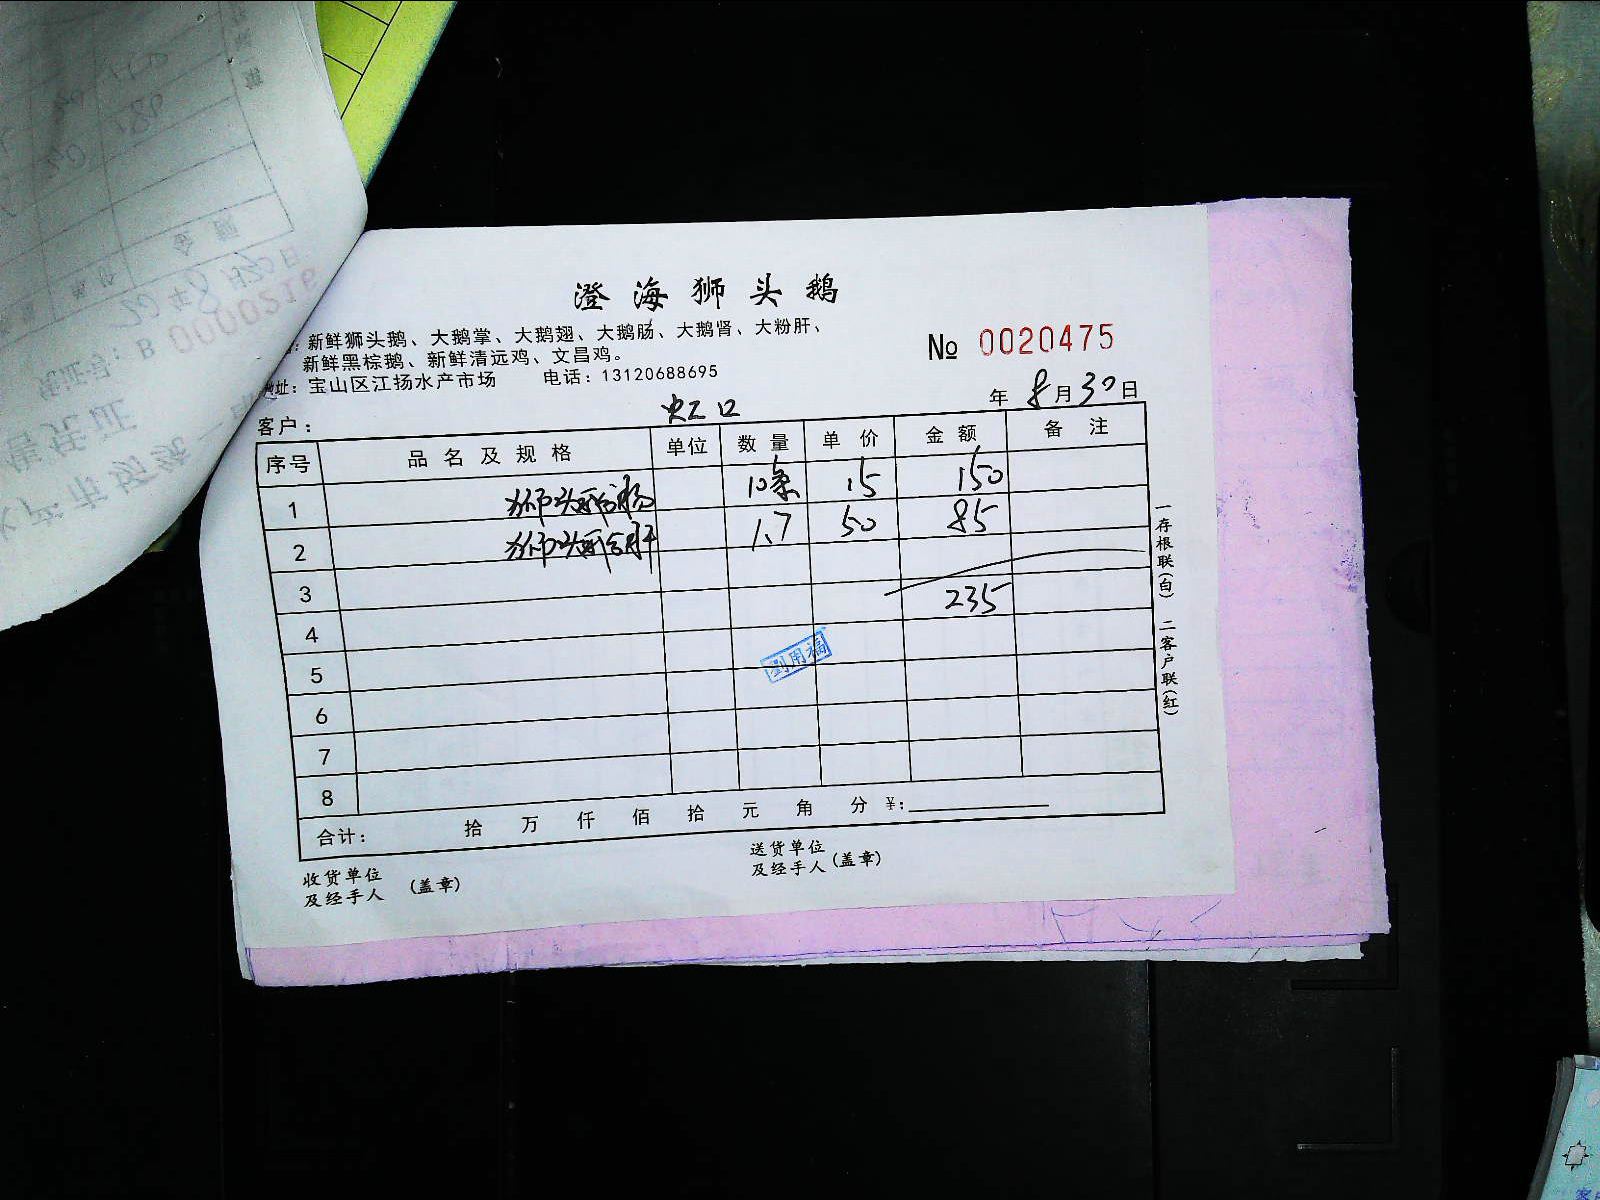 澄海狮头鹅
新鲜狮头鹅、大鹅掌、大鹅翅、大鹅肠、大鹅肾、大粉肝、
新鲜黑棕鹅、新鲜清远鸡、文昌鸡。
№ 0020475
址：宝山区江扬水产市场 电话：13120688695
年 8月30日
客户： 虹口
序号 品名及规格 单位 数量 单价 金额 备注
1 狮头鹅肠 10条 15 150
2 狮头鹅肝 1.7 50 85
3 235
4
5
劉用福
6
7
8
合计： 拾 万 仟 佰 拾 元 角 分 ¥:
收货单位
及经手人 (盖章)
送货单位
及经手人 (盖章)
一存根联(白) 二客户联(红)